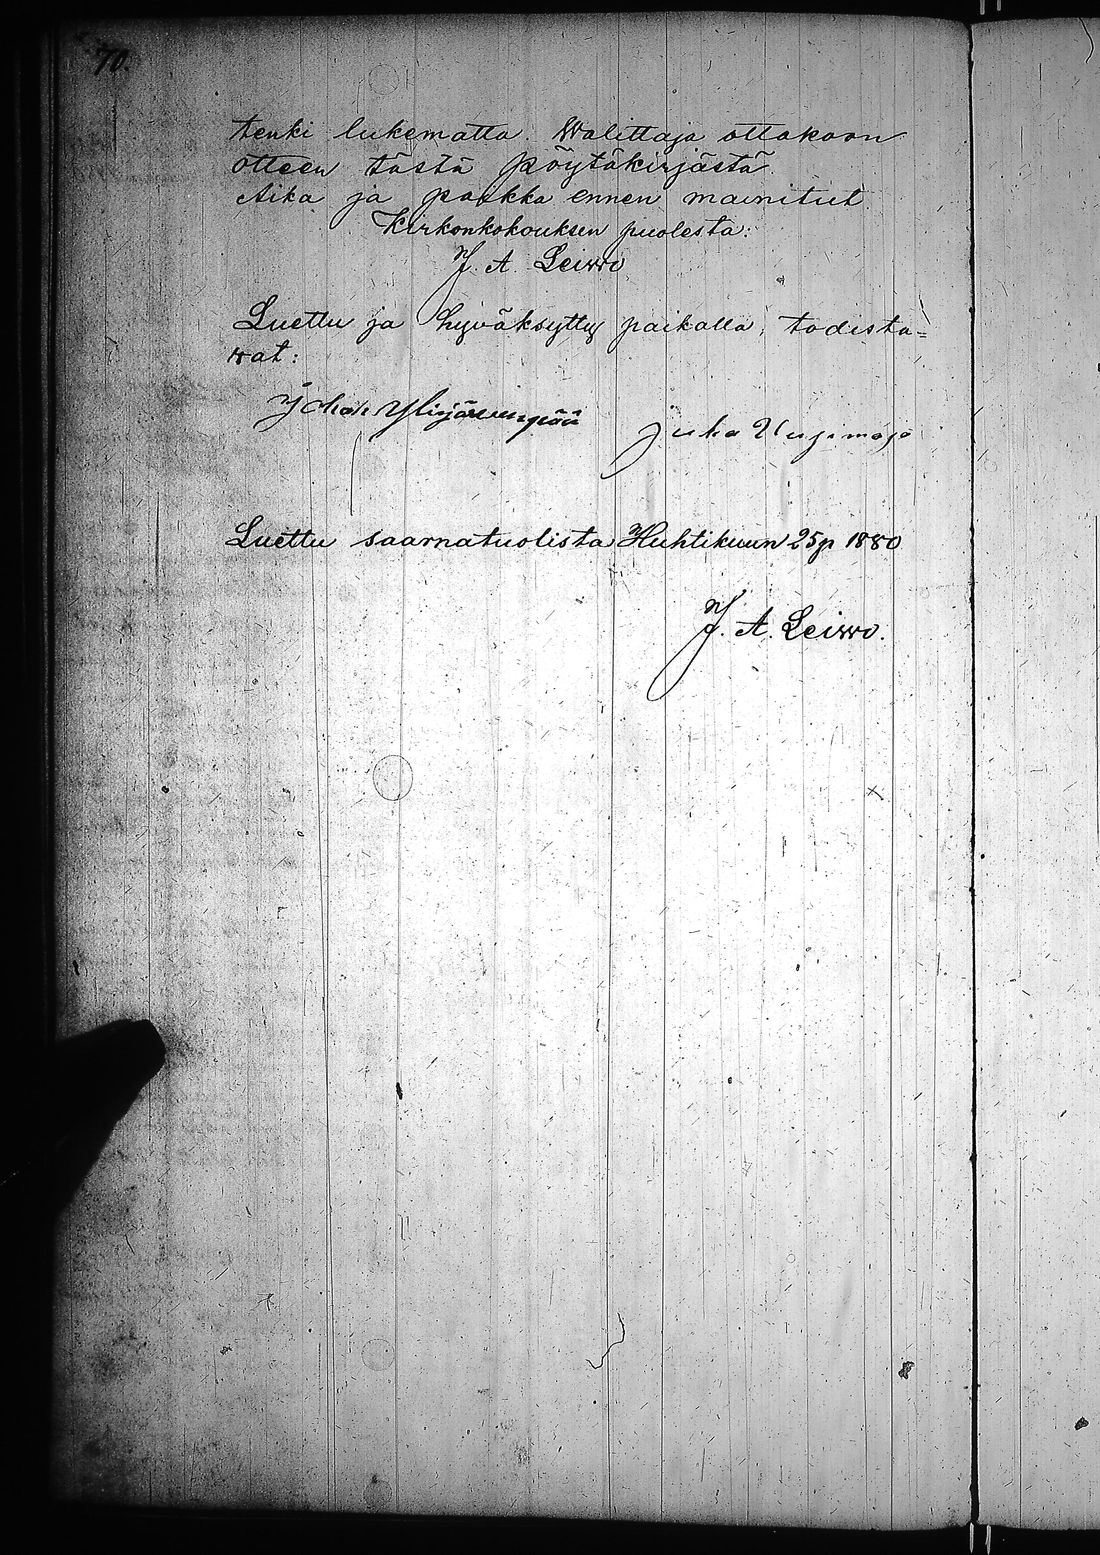 70.
tenki lukematta. Walittaja ottakoon
otteen tästä pöytäkirjästä.
Aika ja paikka ennen mainitut
Kirkonkokouksen puolesta:
J. A. Leiwo
Luettu ja hyväksytty paikalla, todista-
wat:
Johan Ylijärwenpää
Juha
Luettu saarnatuolista Huhtikuun 25p 1880
J. A. Leiwo.